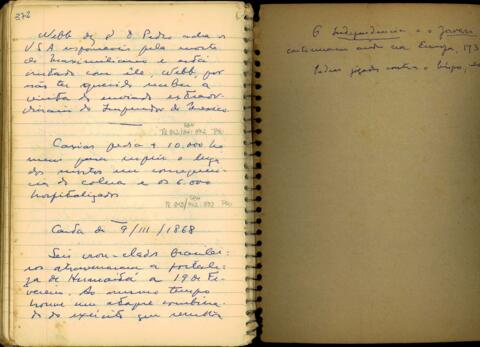 372
Webb diz q D. Pedro acha os
USA responsaveis pela morte
de Maximiliano e está
irritado com ele, Webb, por
não ter querido receber a
visita do enviado extraor-
dinario do Imperador do Mexico.
Caxias pede + 10.000 ho
mens para suprir o lugar
dos mortos em consequen-
cia do colera e os 6.000
hospitalizados
Carta de 9/III/1868
Seis iron-clads brasilei-
ros atravessaram a fortale-
za de Humaitá a 19 de Fe-
vereiro. Ao mesmo tempo
houve um ataque combina-
do do exército que
O Independência e o Jovem
na Europa, 173
Pedras jogadas contra o bispo,